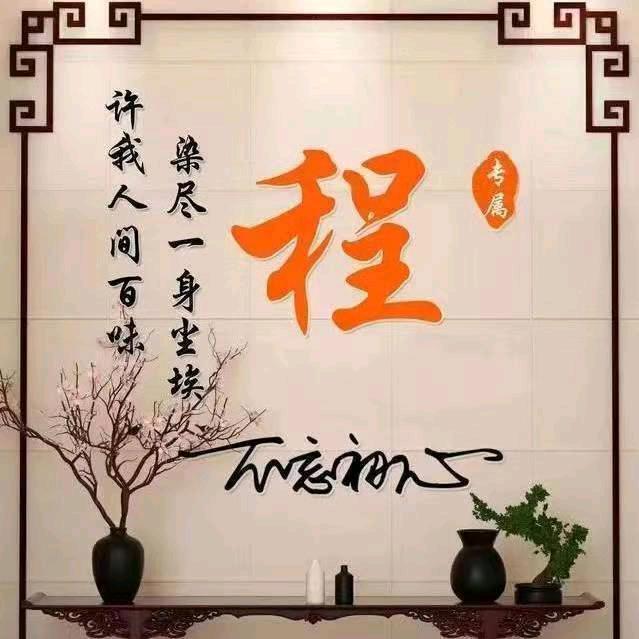 许我人间百味
染尽一身尘埃
程
专属
不忘初心